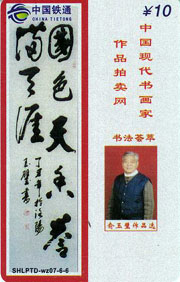 中国铁通
CHINA TIETONG
¥10
國色天香譽
滿天涯
丁亥年於洛陽
玉璧書
中国现代书画家
作品拍卖网
书法荟萃
俞玉璧作品选
SHLPTD-wz07-6-6